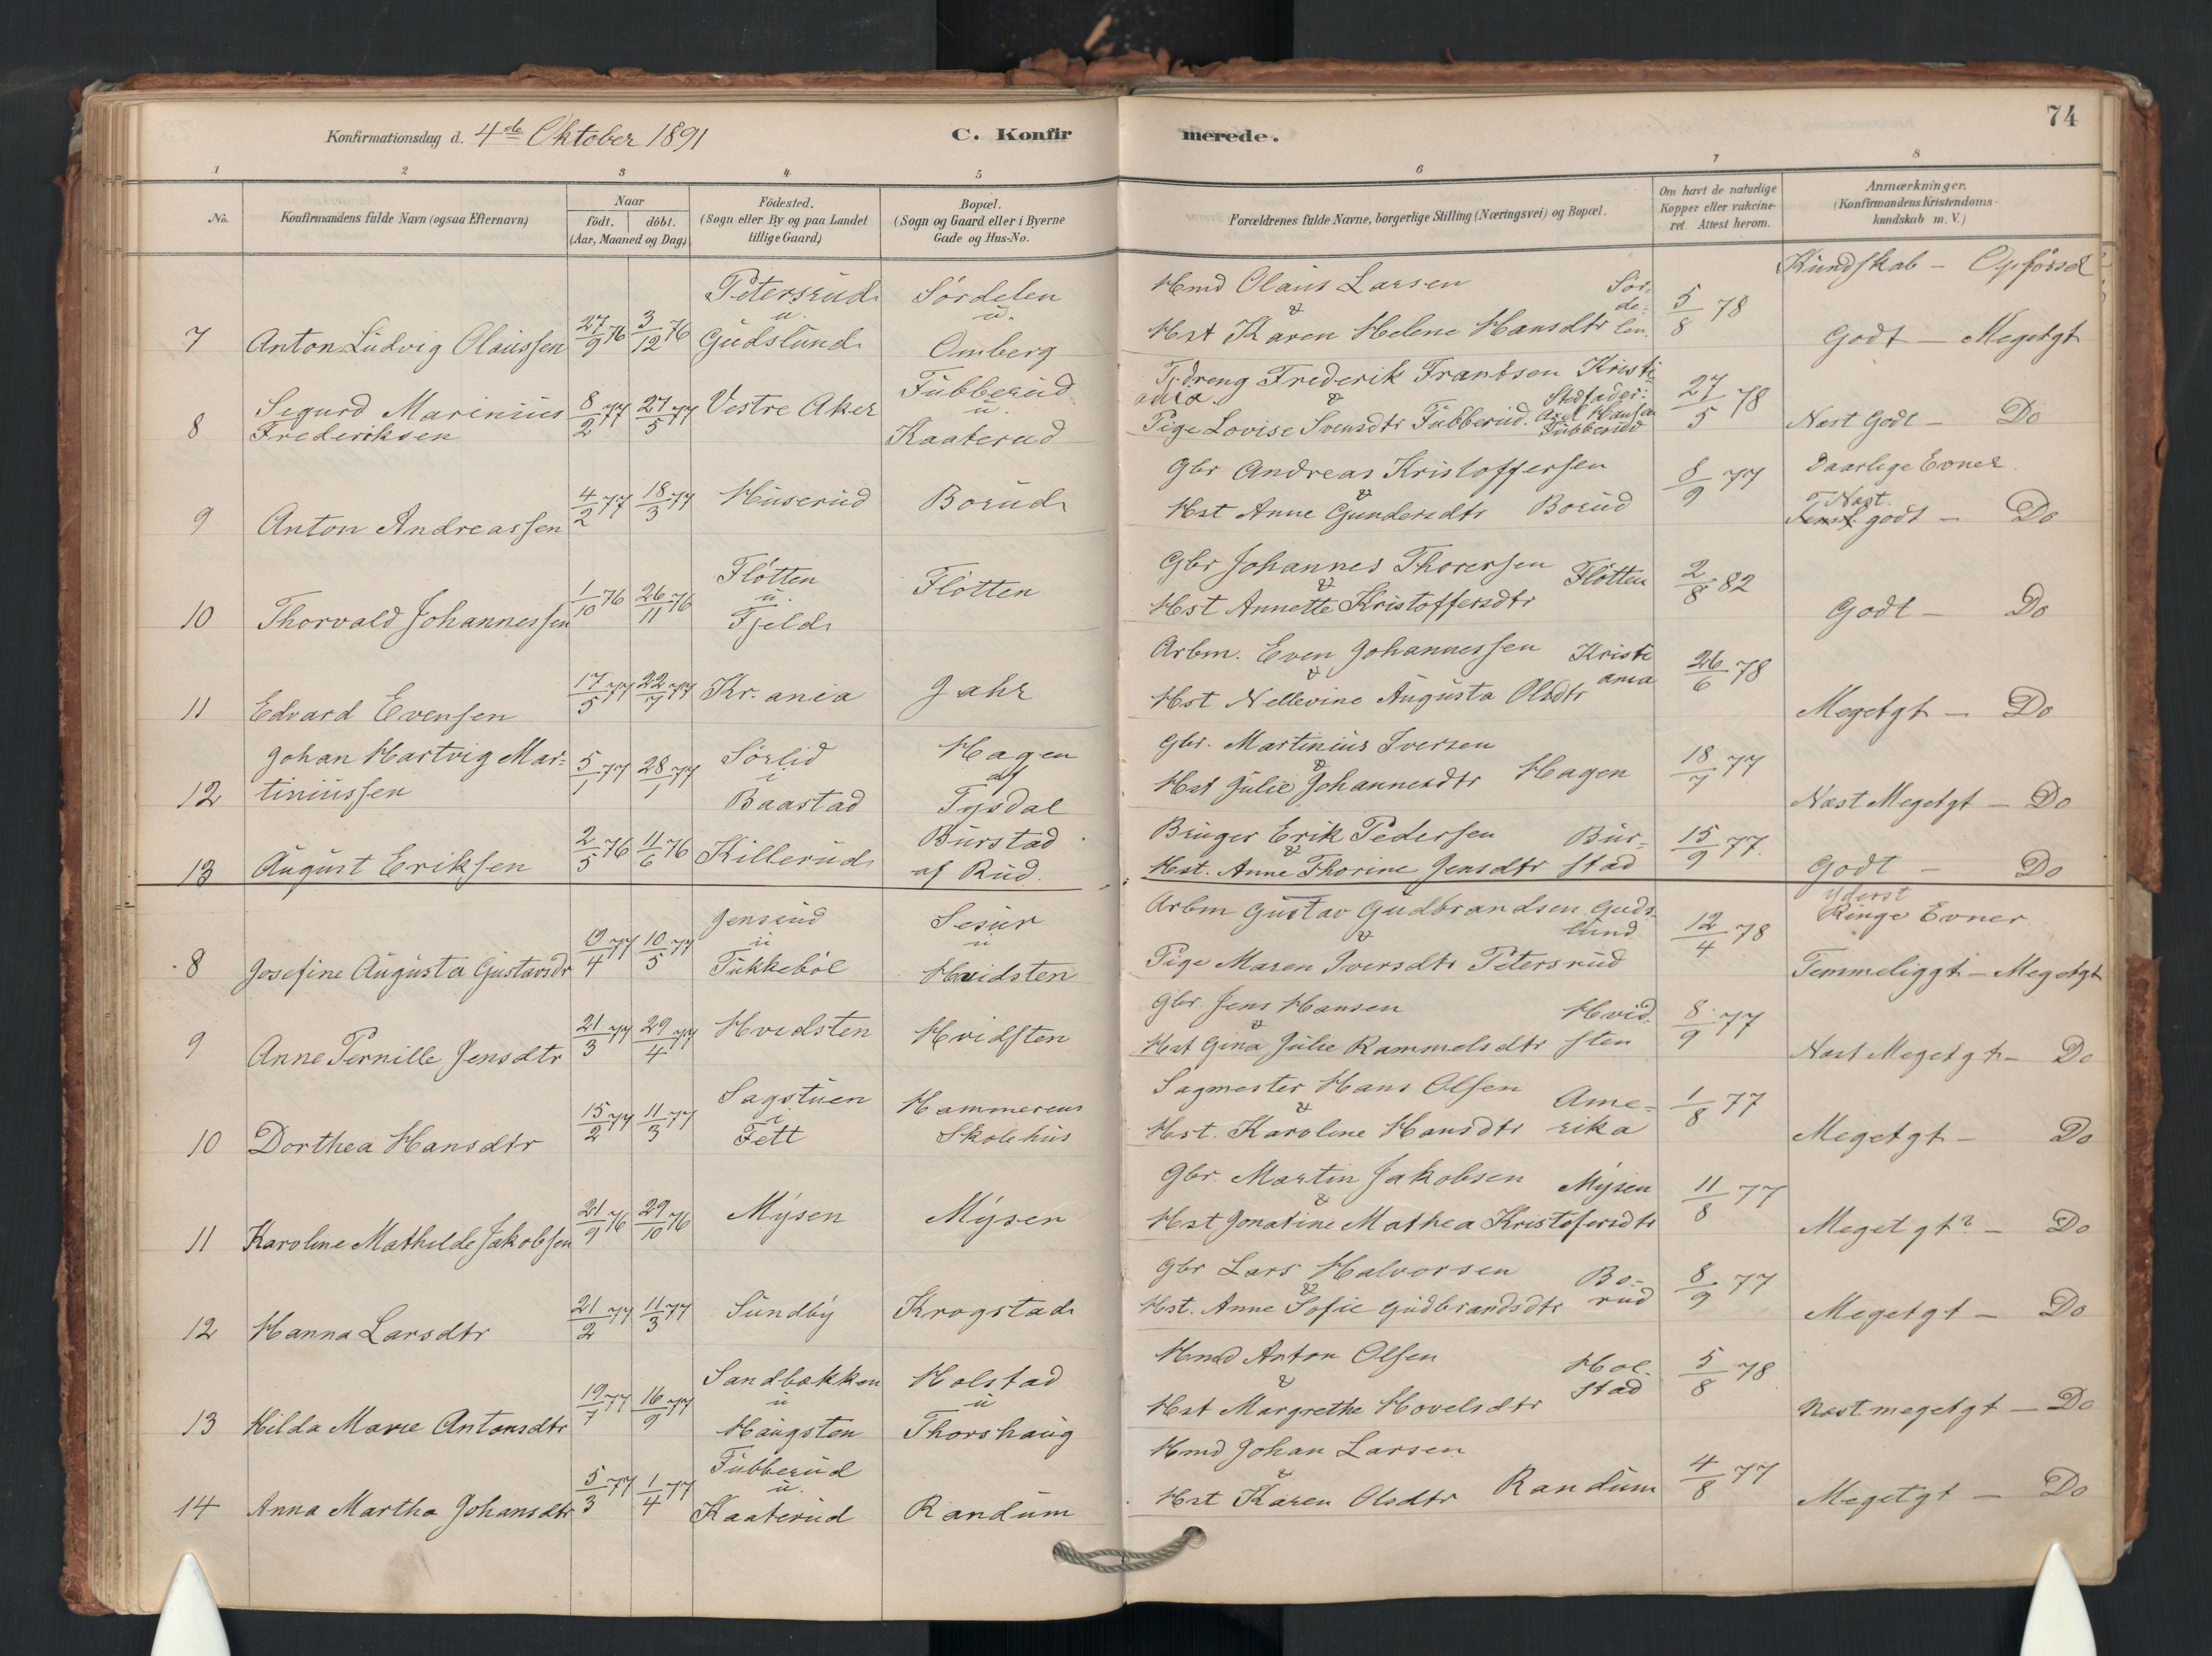 74
Konfirmationsdag d. 4de Oktober 1891
C. Konfirmerede.
1 2 3 4 5 6 7 8
No. Konfirmandens fulde Navn (ogsaa Efternavn) Naar födt. döbt. (Aar, Maaned og Dag) Födested. (Sogn eller By og paa Landet tillige Gaard) Bopæl. (Sogn og Gaard eller i Byerne Gade og Hus-No.
Forældrenes fulde Navne, borgerlige Stilling (Næringsvei) og Bopæl. Om havt de naturlige Kopper eller vakcineret Attest herom. Anmærkninger, (Konfirmandens Kristendomskundskab m. V.)
Kundskab – Opförsel
7 Anton Ludvig Olaussen 27/9 76 3/12 76 Petersrud u. Gudslund Sördelen u. Omberg
Hmd Olaus Larsen & Hst Karen Helene Hansdtr Sördelen 5/8 78 Godt – Megetgt
8 Sigurd Marinius Frederiksen 8/2 77 27/5 77 Vestre Aker Tubberud u. Kaaterud
Tjdreng Frederik Frantsen Kristiania. & Pige Lovise Svensdtr Tubberud. Stedfader: Axel Hansen Tubberud 27/5 78 Næst Godt – Do
9 Anton Andreassen 4/2 77 18/3 77 Huserud Borud
Gbr Andreas Kristoffersen & Hst Anne Gundersdtr Borud 8/9 77 Daarlige Evner Næst godt – Do
10 Thorvald Johannessen 1/10 76 26/11 76 Flötten u. Fjeld Flötten
Gbr Johannes Thoresen & Hst Annette Kristoffersdtr Flötten 2/8 82 Godt – Do
11 Edvard Evensen 17/5 77 22/7 77 Kr.ania Jahr
Arbm. Even Johannessen & Hst Nellevine Augusta Olsdtr Kristiania 26/6 78 Megetgt – Do
12 Johan Hartvig Martiniussen 5/1 77 28/1 77 Sörlid i Baastad Hagen af Tysdal
Gbr. Martinius Iversen & Hst Julie Johannesdtr Hagen 18/7 77 Næst Megetgt – Do
13 August Eriksen 2/5 76 11/6 76 Killerud Burstad af Rud.
Bruger Erik Pedersen & Hst. Anne Thorine Jensdtr Burstad 15/9 77. Godt – Do
8 Josefine Augusta Gustavsdr 19/4 77 10/5 77 Jensrud u Tukkeböl Sesur u Hvidsten
Arbm Gustav Gudbrandsen Gudslund & Pige Maren Iversdtr Petersrud 12/4 78 yderst Ringe Evner Temmeliggt – Megetgt
9 Anne Pernille Jensdtr 21/3 77 29/4 77 Hvidsten Hvidsten
Gbr. Jens Hansen & Hst Gina Julie Rammelsdtr Hvidsten 8/9 77 Næst Megetgt – Do
10 Dorthea Hansdtr 15/2 77 11/3 77 Sagstuen i Fett Hammerens Skolehus
Sagmester Hans Olsen & Hst. Karoline Hansdtr Amerika 1/8 77 Megetgt – Do
11 Karoline Mathilde Jakobsen 21/9 76 29/10 76 Mysen Mysen
Gbr. Martin Jakobsen & Hst Jonatine Mathea Kristofersdtr Mysen 11/8 77 Meget gt? – Do
12 Hanna Larsdtr 21/2 77 11/3 77 Sundby Krogstad
Gbr Lars Halvorsen & Hst. Anne Sofie Gudbrandsdtr Borud 8/9 77 Megetgt – Do
13 Hilda Marie Antonsdtr 19/7 77 16/9 77 Sandbakken u Haugsten Holstad u Thorshaug
Hmd Anton Olsen & Hst Margrethe Hovelsdtr Holstad 5/8 78 Næst megetgt – Do
14 Anna Martha Johansdtr 5/3 77 1/4 77 Tubberud u. Kaaterud Randum
Hmd Johan Larsen & Hst Karen Olsdtr Randum 4/8 77 Megetgt – Do